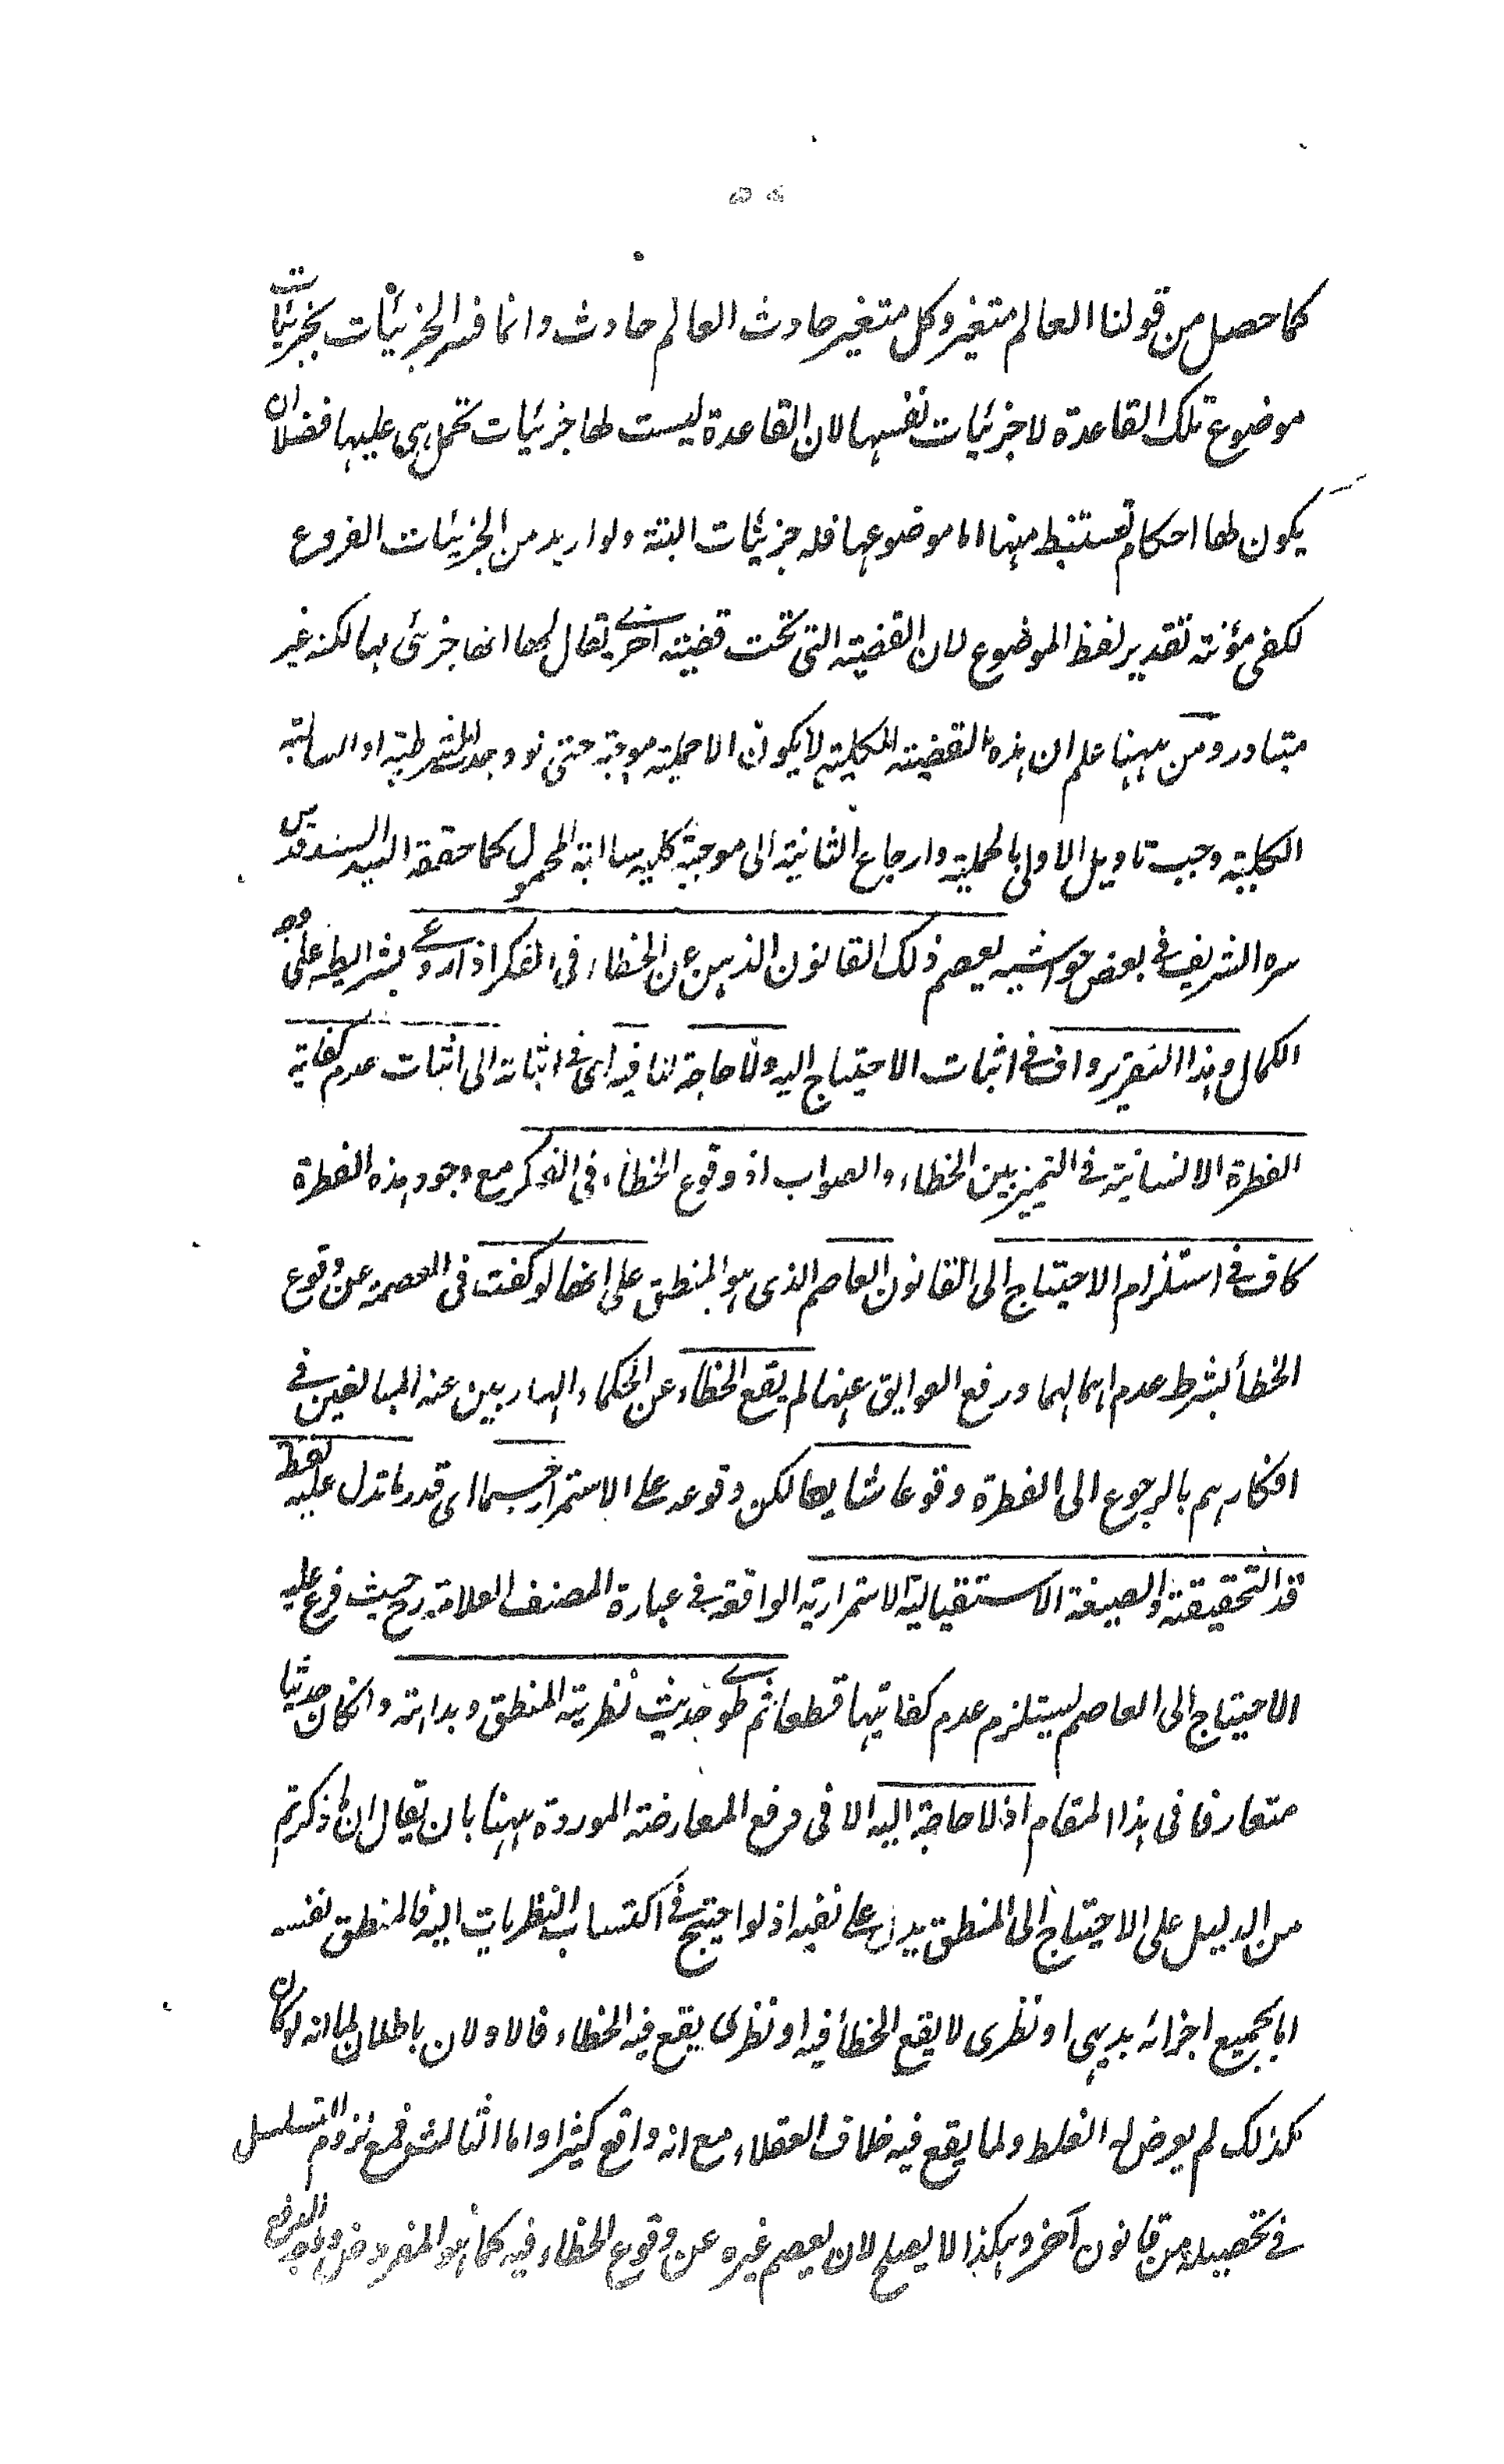 كما حصل من قولنا العالم متغير وكل متغير حادث العالم حادث وانما فسر الجزئيات بجزئيات
موضوع تلك القاعدة لا جزئيات نفسها لان القاعدة ليست لها جزئيات تحمل هي عليها فضلا ان
يكون لها احكام تستنبط منها اما موضوعها فله جزئيات البتة ولو اريد من الجزئيات الفروع
لكفى مؤنته تقدير لفظ الموضوع لان القضية التى تحت قضية اخرى يقال لها انها جزئى لها لكنه غير
متبادر ومن ههنا علم ان هذه القضية الكلية لا يكون الا حملية موجبة حتى لو وجدت الشرطية او السالبة
الكلية وجب تاويل الاولى بالحملية وارجاع الثانية الى موجبة كلية سالبة المحمول كما حققه السيد السند قدس
سره الشريف فى بعض حواشيه يعصم ذلك القانون الذهن عن الخطاء فى الفكر اذا روعى بشرايطه على وجه
الكمال وهذا التقرير واف فى اثبات الاحتياج اليه ولا حاجة لنا فيه اى فى اثباته الى اثبات عدم كفاية
الفطرة الانسانية فى التميز بين الخطاء والصواب اذ وقوع الخطاء فى الفكر مع وجود هذه الفطرة
كاف فى استلزام الاحتياج الى القانون العاصم الذى هو المنطق على انها لو كفت فى العصمة عن وقوع
الخطأ بشرط عدم اهمالها ورفع العوايق عنها لم يقع الخطاء عن الحكماء الهاربين عنه المبالغين فى
افكارهم بالرجوع الى الفطرة وقوعا شايعا لكن وقوعه على الاستمرار حسبما اى قدر ما تدل عليه لفظ
قد التحقيقية والصيغة الاستقبالية الاستمرارية الواقعة فى عبارة المصنف العلامة رح حيث فرع عليه
الاحتياج الى العاصم ليستلزم عدم كفايتها قطعا ثم طوى حديث نظرية المنطق وبداهته وان كان حديثا
متعارفا فى هذا المقام اذ لا حاجة اليه الا فى دفع المعارضة الموردة ههنا بان يقال ان ما ذكرتم
من الدليل على الاحتياج الى المنطق يدل على نفيه اذ لو احتيج فى اكتساب النظريات اليه فالمنطق نفسه
اما بجميع اجزائه بديهى او نظرى لا يقع الخطأ فيه او نظرى يقع فيه الخطاء فالاولان باطلان لما انه لو كان
كذلك لم يعرض له الغلط ولما يقع فيه خلاف العقلاء مع انه واقع كثيرا واما الثالث فمع لزوم التسلسل
فى تحصيله من قانون آخر وهكذا لا يصلح لان يعصم غيره عن وقوع الخطاء فيه كما هو المفروض ووجه الدفع